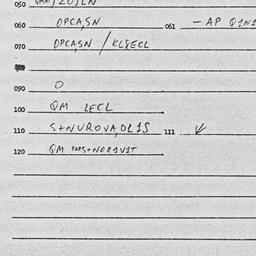 050
060 OPCA,SN 061 - AP
070 OPCA,SN / KL8ECL
090 O
100 QM LECL
110 S+NUROVA,DL1S 111
120 QM